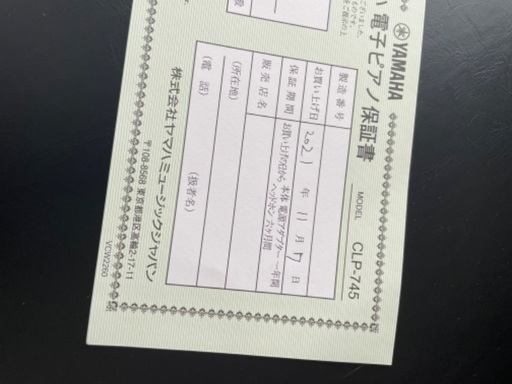 YAMAHA
電子ピアノ 保証書
MODEL CLP-745
製造番号
お買い上げ日 2021年 11月 7日
保証期間 お買い上げの日から 本体 電源アダプター 一年間
ヘッドホン 六ヶ月間
販売店名
(所在地)
(電 話) (扱者名)
株式会社ヤマハミュージックジャパン
〒108-8568 東京都港区高輪2-17-11
VCW2260
ございました。
ものです。
をご提示の上